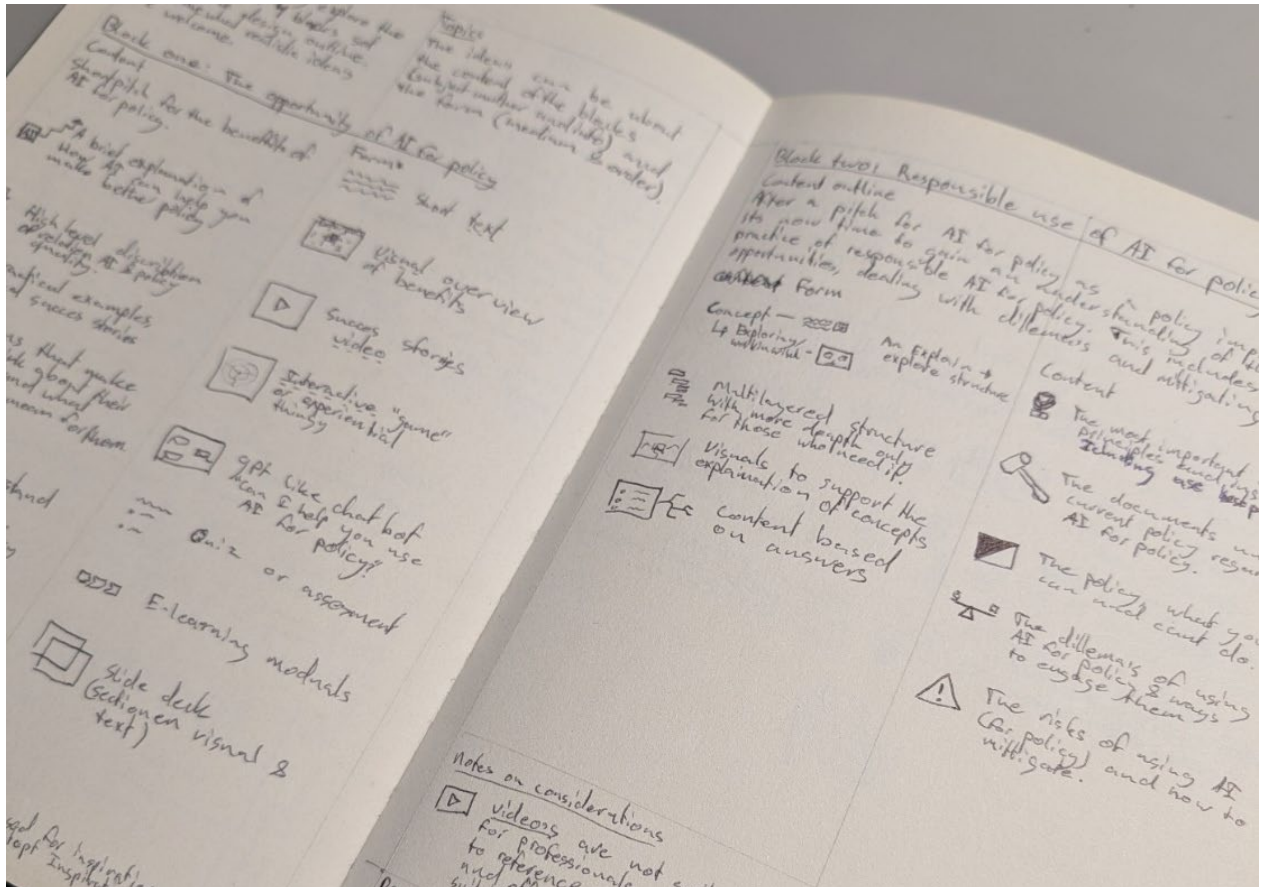 explore the
of blocks set
design outline
somewhat realistic ideas
welcome.
Topics
The ideas can be about
the content of the blocks
(subject matter and info) and
the form (medium & order).
Block one: The opportunity of AI for policy
Content
Short pitch for the benefits of
AI for policy.
A brief explanation of
How AI can help you
make better policy
High level discribtion
of relation AI & policy
quality.
examples,
succes stories
that make
about their
and what
mean for them
Form
Short text
Visual over view
of benefits
Succes stories
video
Interactive "game"
or experiential
thingy
gpt like chat bot
"Can I help you use
AI for policy?"
Quiz or assesment
E-learning moduals
Slide deck
(section en visual &
text)
for inspiration
Block two: Responsible use of AI for policy
Content outline
After a pitch for AI for policy as a policy
its now time to gain an understanding of the
practice of responsible AI for policy. This includes
opportunities, dealing with dillemas and mitigating
Form
Concept —
↳ Exploring
An Explain →
explore structure
Multilayered structure
with more depth only
for those who need it.
Visuals to support the
explaination of concepts
Content based
on answers
Content
The most important
principles and
The documents
current policy
AI for policy.
The policy, what you
can and cant do.
The dillemas of using
AI for policy & ways
to engage them
The risks of using AI
(for policy) and how to
mittigate.
Notes on considerations
videos are not
for professionals
to reference
and